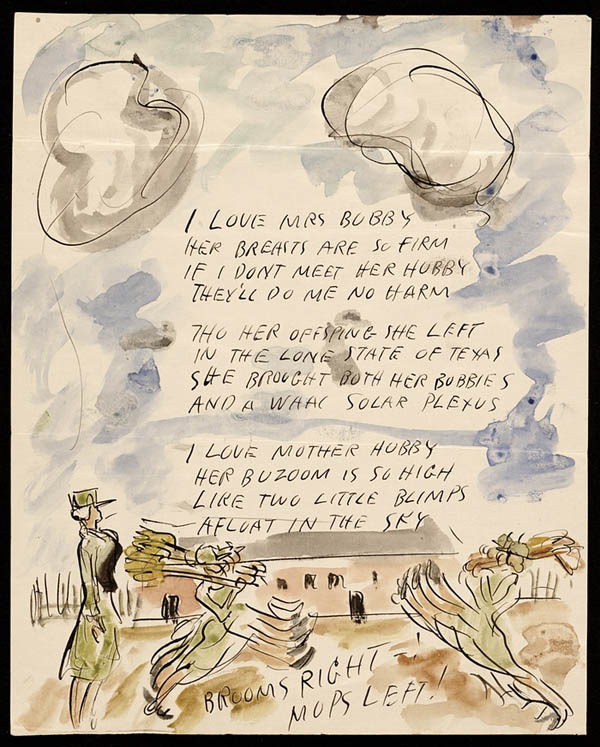 I LOVE MRS BUBBY
HER BREASTS ARE SO FIRM
IF I DONT MEET HER HUBBY
THEY'LL DO ME NO HARM
THO HER OFFSPING SHE LEFT
IN THE LONE STATE OF TEXAS
SHE BROUGHT BOTH HER BUBBIES
AND A WAAC SOLAR PLEXUS
I LOVE MOTHER HUBBY
HER BUZOOM IS SO HIGH
LIKE TWO LITTLE BLIMPS
AFLOAT IN THE SKY
BROOMS RIGHT -
MOPS LEFT!